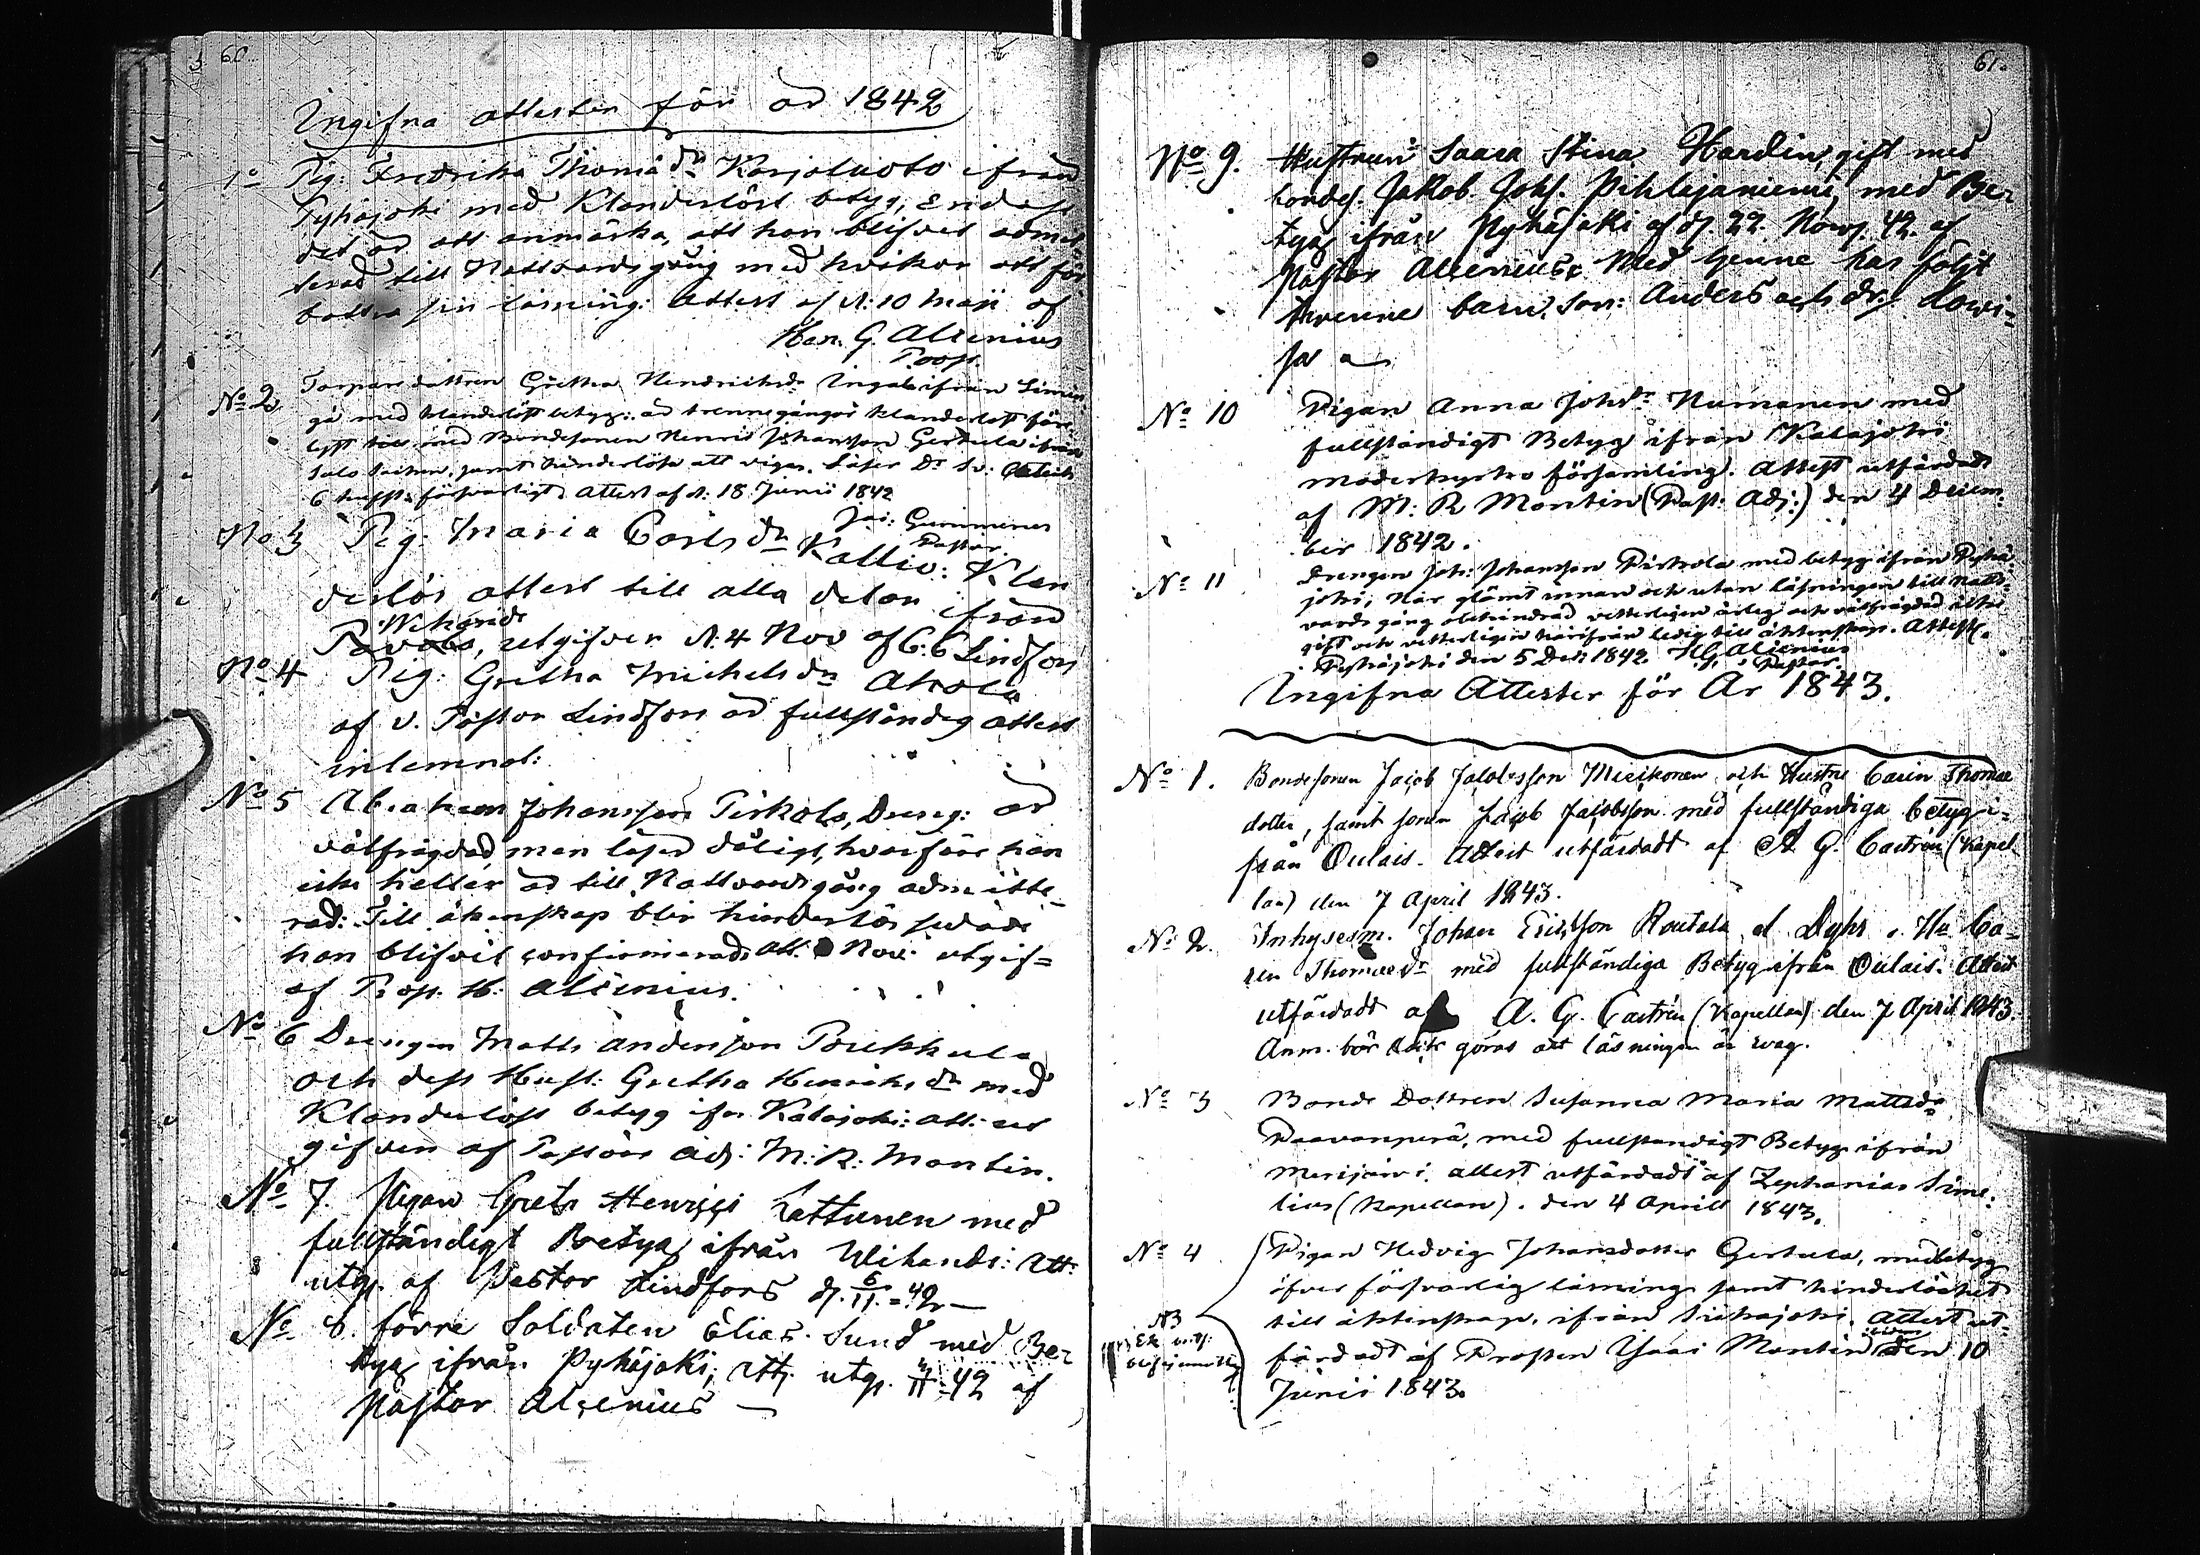 60.
Ingifna attester för år 1842
1o Pig: Fredrika Thomædr Karjaluoto ifrån
Pyhäjoki med Klanderlöst betyg, Endast
det är att anmärka, att hon blifvit admit-
terad till Nattvards gång med hvikor att för
bättra sin läsning: Attest af d: 10 Maji af
Han. G. Alcenius
Prop.
No 2. Torparedottren Gretha Hendrichsdr Ingala ifrån Limin
ga med klanderlöst betyg: är trenne gångor klanderlöst före
lyst till med Bondesonen Henric Johansson Gertula ifrån
Salo Socken, samt hinderlös att vigas. Läser Dr Sv:
6 försvarligt. Attest af d: 18 Junii 1842
Jac: Gummerus
Pastor.
No 3 Pig. Maria Carlsdr Kallio: Klan
derlös attest till alla delar ifrån
Wihandi
Pavola, utgifven d. 4 Nov af C: C Lindfors
No 4 Pig: Gretha Michelsdr Ahola
af v. Pastor Lindfors är fullständig attest
inlemnat:
No 5 Abraham Johansson Pirkola, Dreng: är
välfrägdad men läser dåligt, hvarföre han
icke heller är till Nattvards gång admitte-
rad: Till äktenskap blir hinderlös sedan
han blifvit confirmerad. Att. Nov: utgif=
af Prop. H: Alcenius.
No 6 Drengen Matts Andersson Poukkula
och dess Hust: Gretha Henricsdr med
Klanderlöst betyg ifrn Kalajoki: att: ut
gifven af Pastors Adj: M: R: Montin.
No 7. Pigan Greta Henrics Lattunen med
fullständigt Betyg ifrån Wihandi: Att:
utg. af Pastor Lindfors d. 6/11 = 42 —
No 8. förre Soldaten Elias Sund med Be=
tyg ifrån Pyhäjoki; Att. utg. 4/11 = 42 af
Pastor Alcenius —
61.
No 9. Hustrun Saara Stina Hardin, gift med
bondes. Jakob Johs. Pihlajaniemi, med Be=
tyg ifrån Pyhäjoki af d. 22. Nov. 42. af
Pastor Alcenius. Med henne har följt
tvenne barn. Son: Anders och dr: Lowi=
sa —
No 10 Pigan Anna Johsdr Numanen med
fullständigt Betyg ifrån Kalajoki
moderkyrko församling. Attest utfärdadt
af M: R Montin (Past: Adj:) den 4 Decem-
ber 1842.
No 11 Drengen Joh: Johansson Pirkola med betyg ifrån Pyhä-
joki, har glömt innan och utan läsningen till natt-
vards gång obehindrad veterligen ärlig och välfrägdad icke
gift och veterligen härifrån ledig till äktenskap. Attest.
Pyhäjoki den 5 Dec 1842 H G Alcenius
Pastor.
Ingifna Attester för År 1843.
No 1. Bondesonen Jacob Jacobsson Miesikonen och Hustru Carin Thomæ
dotter, samt sonen Jacob Jacobsson med fullständiga betyg i=
från Oulais. Attest utfärdadt af A G. Castrén (Kapel
lan) den 7 April 1843.
No 2. Inhysesm. Johan Ericsson Routala el Dyhr o. Hu Ca=
rin Thomædr med fullständiga Betyg ifrån Oulais. Attest
utfärdadt af A. G. Castrén (Kapellan) den 7 April 1843.
Anm. bör göras att läsningen är svag.
No 3 Bonde Dottren Susanna Maria Mattsdr
Paavanperä, med fullständigt Betyg ifrån
Merijärvi. Attest utfärdadt af Zephanias Sime-
lius (Kapellan). den 4 Aprill 1843.
No 4 Pigan Hedvig Johansdotter Gertula, med betyg
öfver försvarlig läsning samt hinderlöshet
till äktenskap, ifrån Siikajoki. Attest ut-
färdadt af Prosten Isac Montin den 10
Junii 1843.
NB